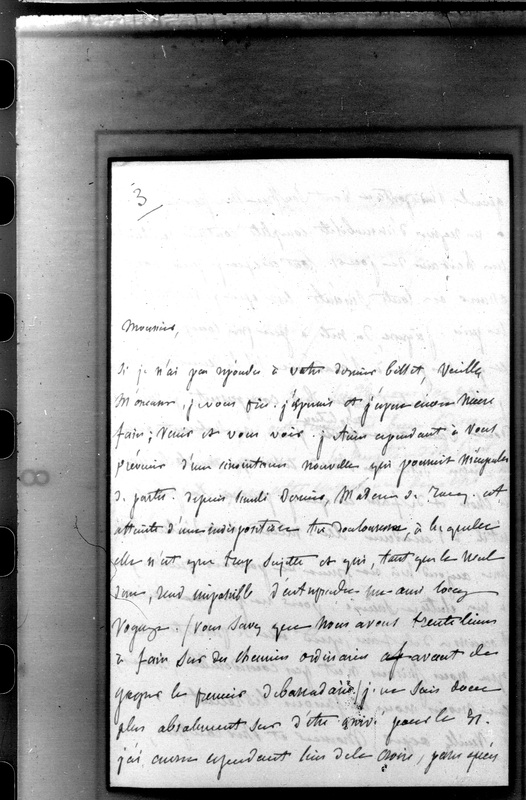 3
Monsieur,
Si je n'ai pas répondu à votre dernier billet, veuillez
Monsieur, je vous prie. j'espérais et j'espère encore mieux
faire; venir et vous voir. je tiens cependant à vous
prévenir d'une circonstance nouvelle qui pourrait m'empêcher
de partir. depuis lundi dernier, Madame de est
atteinte d'une indisposition très douloureuse à laquelle
elle n'est que trop sujette et qui, tant que le mal
dure, rend impossible d'entreprendre un aussi long
voyage. (vous savez que nous avons trente lieues
à faire sur des chemins ordinaires avant de
gagner le premier débarcadère) je ne suis donc
plus absolument sûr d'être arrivé pour le 31.
j'ai encore cependant lieu de le croire, parce qu'après